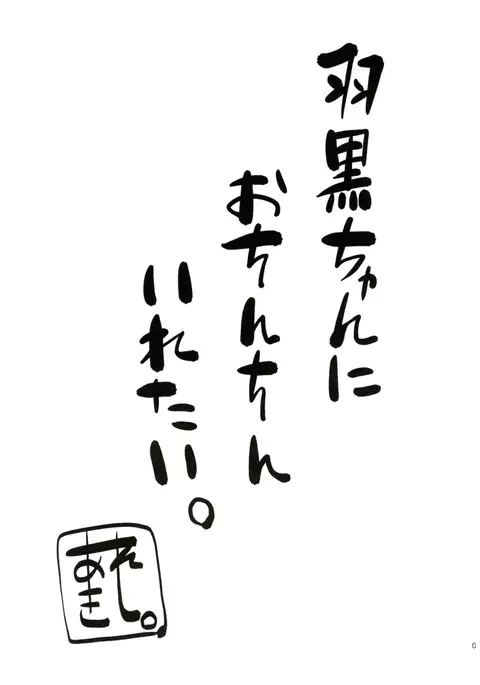 羽黒ちゃんに
おちんちん
いれたい。
0